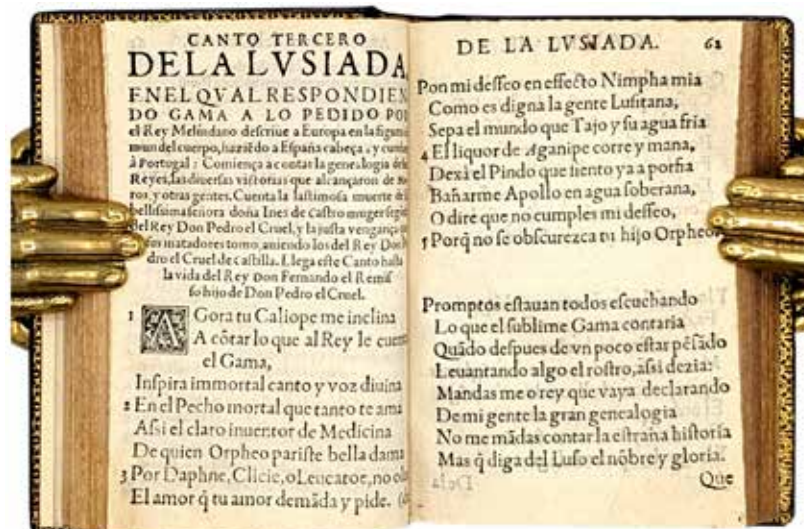 CANTO TERCERO
DE LA LVSIADA,
EN EL QVAL RESPONDIEN
DO GAMA A LO PEDIDO POR
el Rey Melindano descriue a Europa en la
mun del cuerpo, haziēdo a España cabeça, y
à Portugal: Comiença a contar la genealogia
Reyes, las diuersas victorias que alcançaron de
ros y otras gentes. Cuenta la lastimosa muerte
bellissima señora doña Ines de Castro muger
del Rey Don Pedro el Cruel, y la justa vengança
sus matadores tomo, auiendo los del Rey
dro el Cruel de castilla. Llega este Canto hasta
la vida del Rey Don Fernando el Remis
so hijo de Don Pedro el Cruel.
1 AGora tu Caliope me inclina
A cōtar lo que al Rey le
el Gama,
Inspira immortal canto y voz diuina
2 En el Pecho mortal que tanto te ama
Assi el claro inuentor de Medicina
De quien Orpheo pariste bella dama
3 Por Daphne, Clicie, o Leucatoe, no
El amor q̃ tu amor demāda y pide.
DE LA LVSIADA. 62
Pon mi desseo en effecto Nimpha mia
Como es digna la gente Lusitana,
Sepa el mundo que Tajo y su agua fria
4 El liquor de Aganipe corre y mana,
Dexa el Pindo que siento ya a porfia
Bañarme Apollo en agua soberana,
O dire que no cumples mi desseo,
5 Porq̃ no se obscurezca tu hijo Orpheo.
Promptos estauan todos escuchando
Lo que el sublime Gama contaria
Quādo despues de vn poco estar pēsādo
Leuantando algo el rostro, assi dezia:
Mandas me o rey que vaya declarando
De mi gente la gran genealogia
No me mādas contar la estraña historia
Mas q̃ diga del Luso el nōbre y gloria.
Que